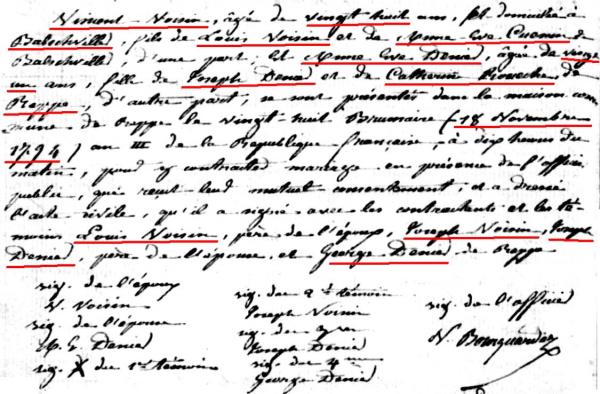 Nimont Voisin, âgé de vingt huit ans, et domicilié à
Balschwillé, fils de Louis Voisin et de Anne Eve Cuenin de
Balschwillé, d'une part; Et Anne Eve Denié, âgée de vingt
un ans, fille de Joseph Denié et de Catherine de
Reppe, d'autre part; se sont présentés dans la maison com-
mune de Reppe le vingt-huit Brumaire (18 Novembre
1794) an III de la République française, à dix heures du
matin, pour y contracter mariage en présence de l'officier
public, qui reçut leur mutuel consentement, et a dressé
l'acte civile, qu'il a signé avec les contractants et les té-
moins Louis Voisin, père de l'époux, Joseph Voisin, Joseph
Denié, père de l'épouse, et George Denié de Reppe
sig. de l'époux
N. Voisin
sig. de l'épouse
A. E. Denié
sig. X du 1er témoin
sig. du 2d témoin
Joseph Voisin
sig. du 3me
Joseph Denié
sig. du 4me
George Denié
sig. de l'officier
N. Bourquardez